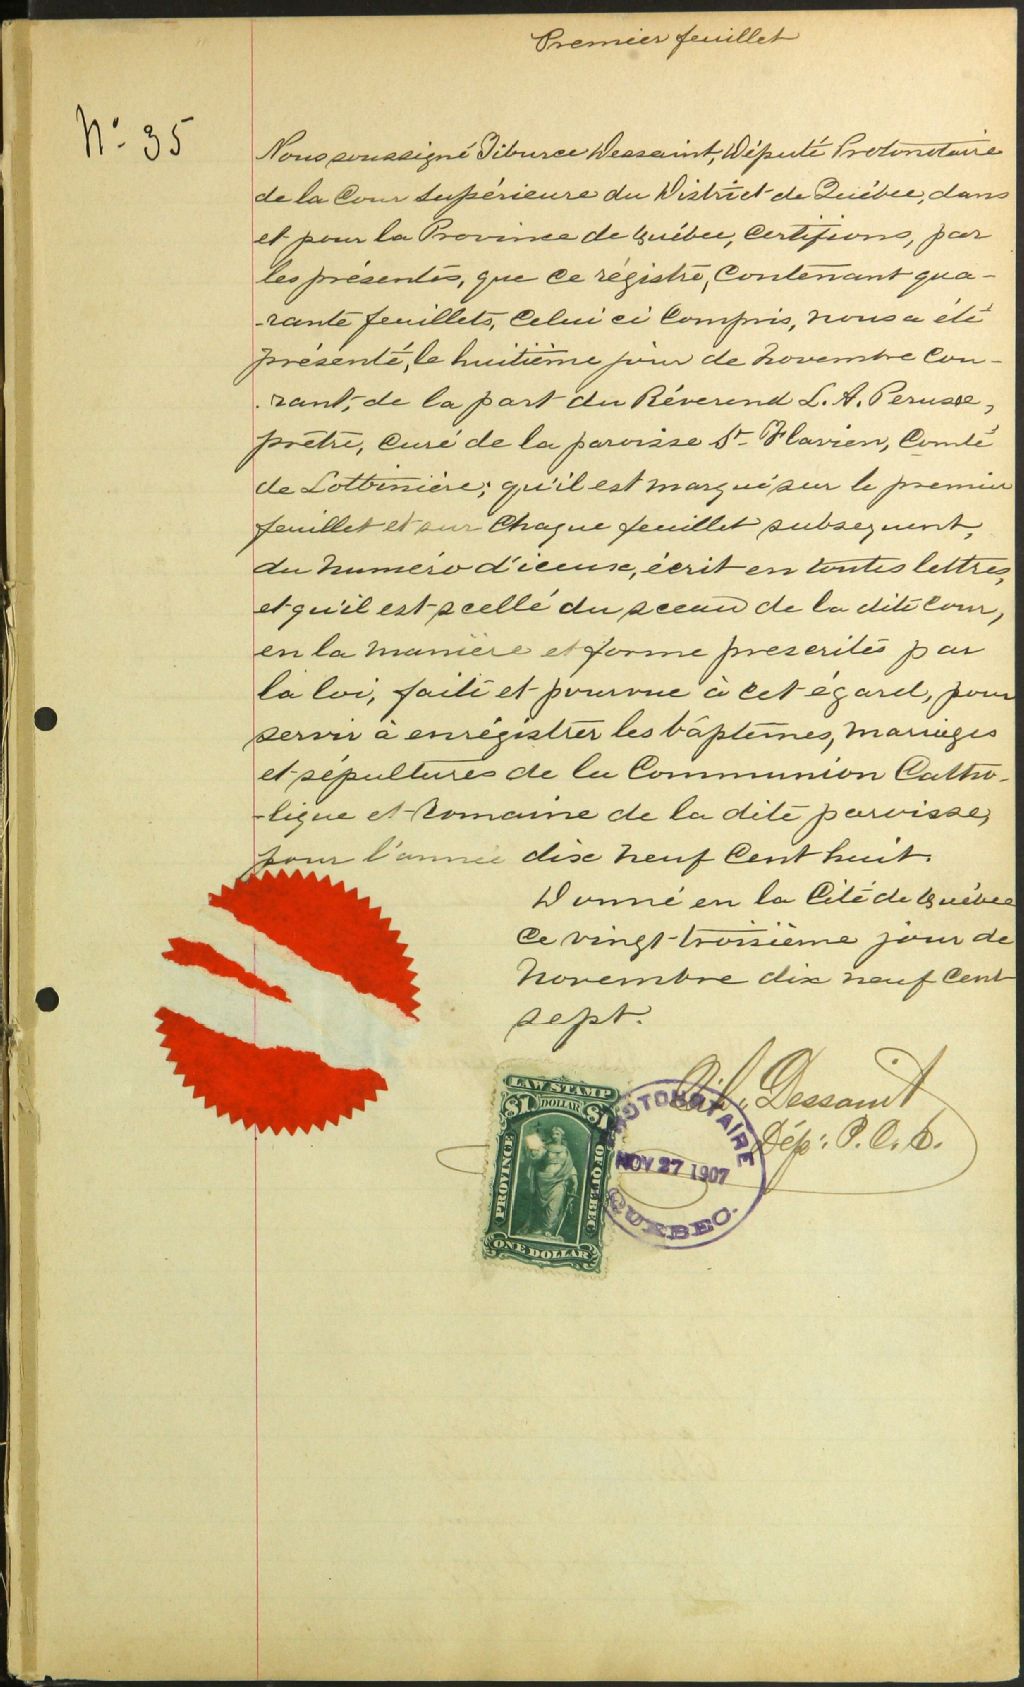 Premier feuillet
No. 35
Nous soussigné Tiburce Dessaint, Député Protonotaire
de la Cour Supérieure du District de Québec, dans
et pour la Province de Québec, certifions, par
les présentes, que ce régistre, contenant qua-
-rante feuillets, celui ci compris, nous a été
présenté, le huitième jour de novembre cou-
-rant, de la part du Révérend L. A. Perusse,
prêtre, curé de la paroisse St Flavien, Comté
de Lotbinière; qu'il est marqué sur le premier
feuillet et sur chaque feuillet subsequent,
du numéro d'iceux, écrit en toutes lettres,
et qu'il est scellé du sceau de la dite Cour,
en la manière et forme prescrites par
la loi, faite et pourvue à cet égard, pour
servir à enrégistrer les baptêmes, mariages
et sépultures de la Communion Catho-
-lique et Romaine de la dite paroisse,
pour l'année dix neuf cent huit.
Donné en la Cité de Québec
ce vingt-troisième jour de
novembre dix neuf cent
sept.
Tib. Dessaint
Dép. P. C. S.
LAW STAMP
$1 DOLLAR $1
PROVINCE OF QUEBEC
ONE DOLLAR
PROTONOTAIRE
NOV 27 1907
QUEBEC.